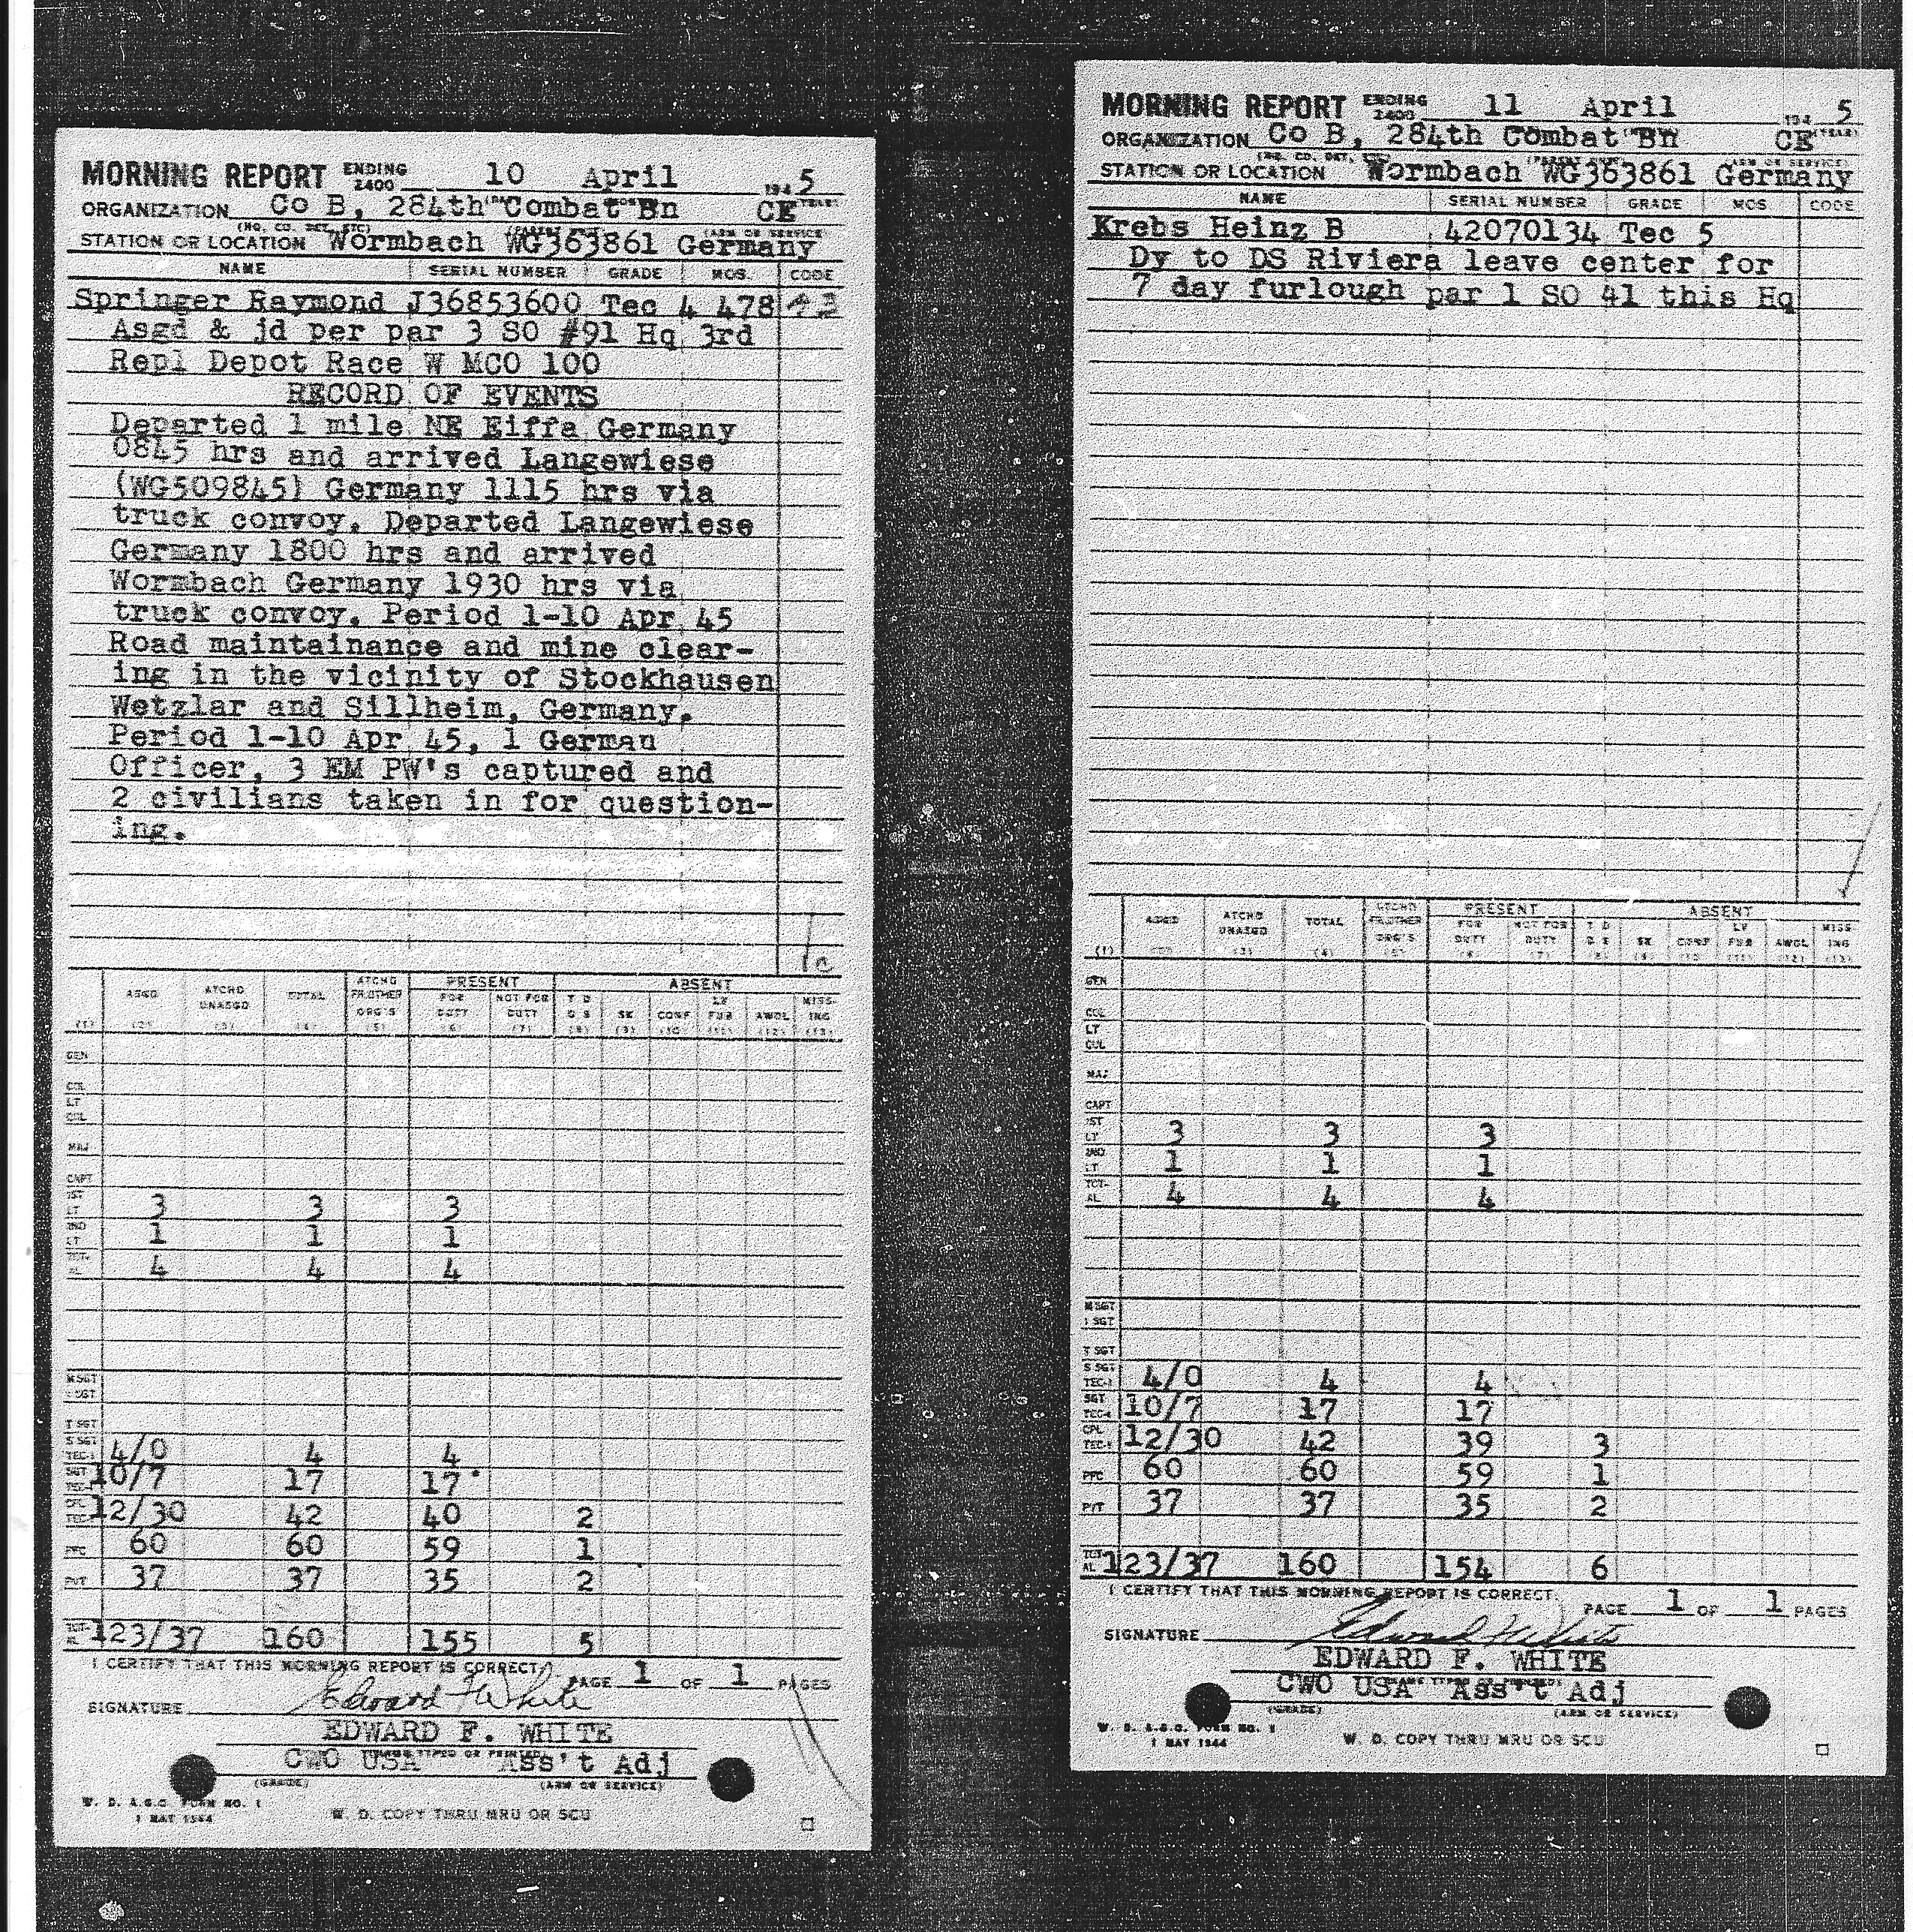 MORNING REPORT ENDING 2400 10 April 194 5
ORGANIZATION Co B, 284th Combat Bn CE
STATION OR LOCATION Wormbach WG363861 Germany
NAME SERIAL NUMBER GRADE MOS. CODE
Springer Raymond J 36853600 Tec 4 478
Asgd & jd per par 3 SO #91 Hq 3rd
Repl Depot Race W MCO 100
RECORD OF EVENTS
Departed 1 mile NE Eiffa Germany
0845 hrs and arrived Langewiese
(WG509845) Germany 1115 hrs via
truck convoy. Departed Langewiese
Germany 1800 hrs and arrived
Wormbach Germany 1930 hrs via
truck convoy. Period 1-10 Apr 45
Road maintainance and mine clear-
ing in the vicinity of Stockhausen
Wetzlar and Sillheim, Germany.
Period 1-10 Apr 45, 1 German
Officer, 3 EM PW's captured and
2 civilians taken in for question-
ing.
ASGD ATCHD UNASGD TOTAL ATCHD FR.OTHER ORG'S PRESENT FOR DUTY NOT FOR DUTY ABSENT T D D S SK CONF LV FUR AWOL MISS-ING
(1) (2) (3) (4) (5) (6) (7) (8) (9) (10) (11) (12) (13)
GEN
COL
LT COL
MAJ
CAPT
1ST LT 3 3 3
2ND LT 1 1 1
TOT-AL 4 4 4
M SGT
1 SGT
T SGT
S SGT TEC-3 4/0 4 4
SGT TEC-4 10/7 17 17
CPL TEC-5 12/30 42 40 2
PFC 60 60 59 1
PVT 37 37 35 2
TOT-AL 123/37 160 155 5
I CERTIFY THAT THIS MORNING REPORT IS CORRECT. PAGE 1 OF 1 PAGES
SIGNATURE Edward F White
EDWARD F. WHITE
CWO USA Ass't Adj
(GRADE) (ARM OR SERVICE)
W. D. A.G.O. FORM NO. 1
1 MAY 1944
W. D. COPY THRU MRU OR SCU
MORNING REPORT ENDING 2400 11 April 194 5
ORGANIZATION Co B, 284th Combat Bn CE
STATION OR LOCATION Wormbach WG363861 Germany
NAME SERIAL NUMBER GRADE MOS CODE
Krebs Heinz B 42070134 Tec 5
Dy to DS Riviera leave center for
7 day furlough par 1 SO 41 this Hq
ASGD ATCHD UNASGD TOTAL ATCHD FR.OTHER ORG'S PRESENT FOR DUTY NOT FOR DUTY ABSENT T D D S SK CONF LV FUR AWOL MISS ING
(1) (2) (3) (4) (5) (6) (7) (8) (9) (10) (11) (12) (13)
GEN
COL
LT COL
MAJ
CAPT
1ST LT 3 3 3
2ND LT 1 1 1
TOT-AL 4 4 4
M SGT
1 SGT
T SGT
S SGT TEC-3 4/0 4 4
SGT TEC-4 10/7 17 17
CPL TEC-5 12/30 42 39 3
PFC 60 60 59 1
PVT 37 37 35 2
TOT-AL 123/37 160 154 6
I CERTIFY THAT THIS MORNING REPORT IS CORRECT. PAGE 1 OF 1 PAGES
SIGNATURE Edward F White
EDWARD F. WHITE
CWO USA Ass't Adj
(GRADE) (ARM OR SERVICE)
W. D. A.G.O. FORM NO. 1
1 MAY 1944
W. D. COPY THRU MRU OR SCU